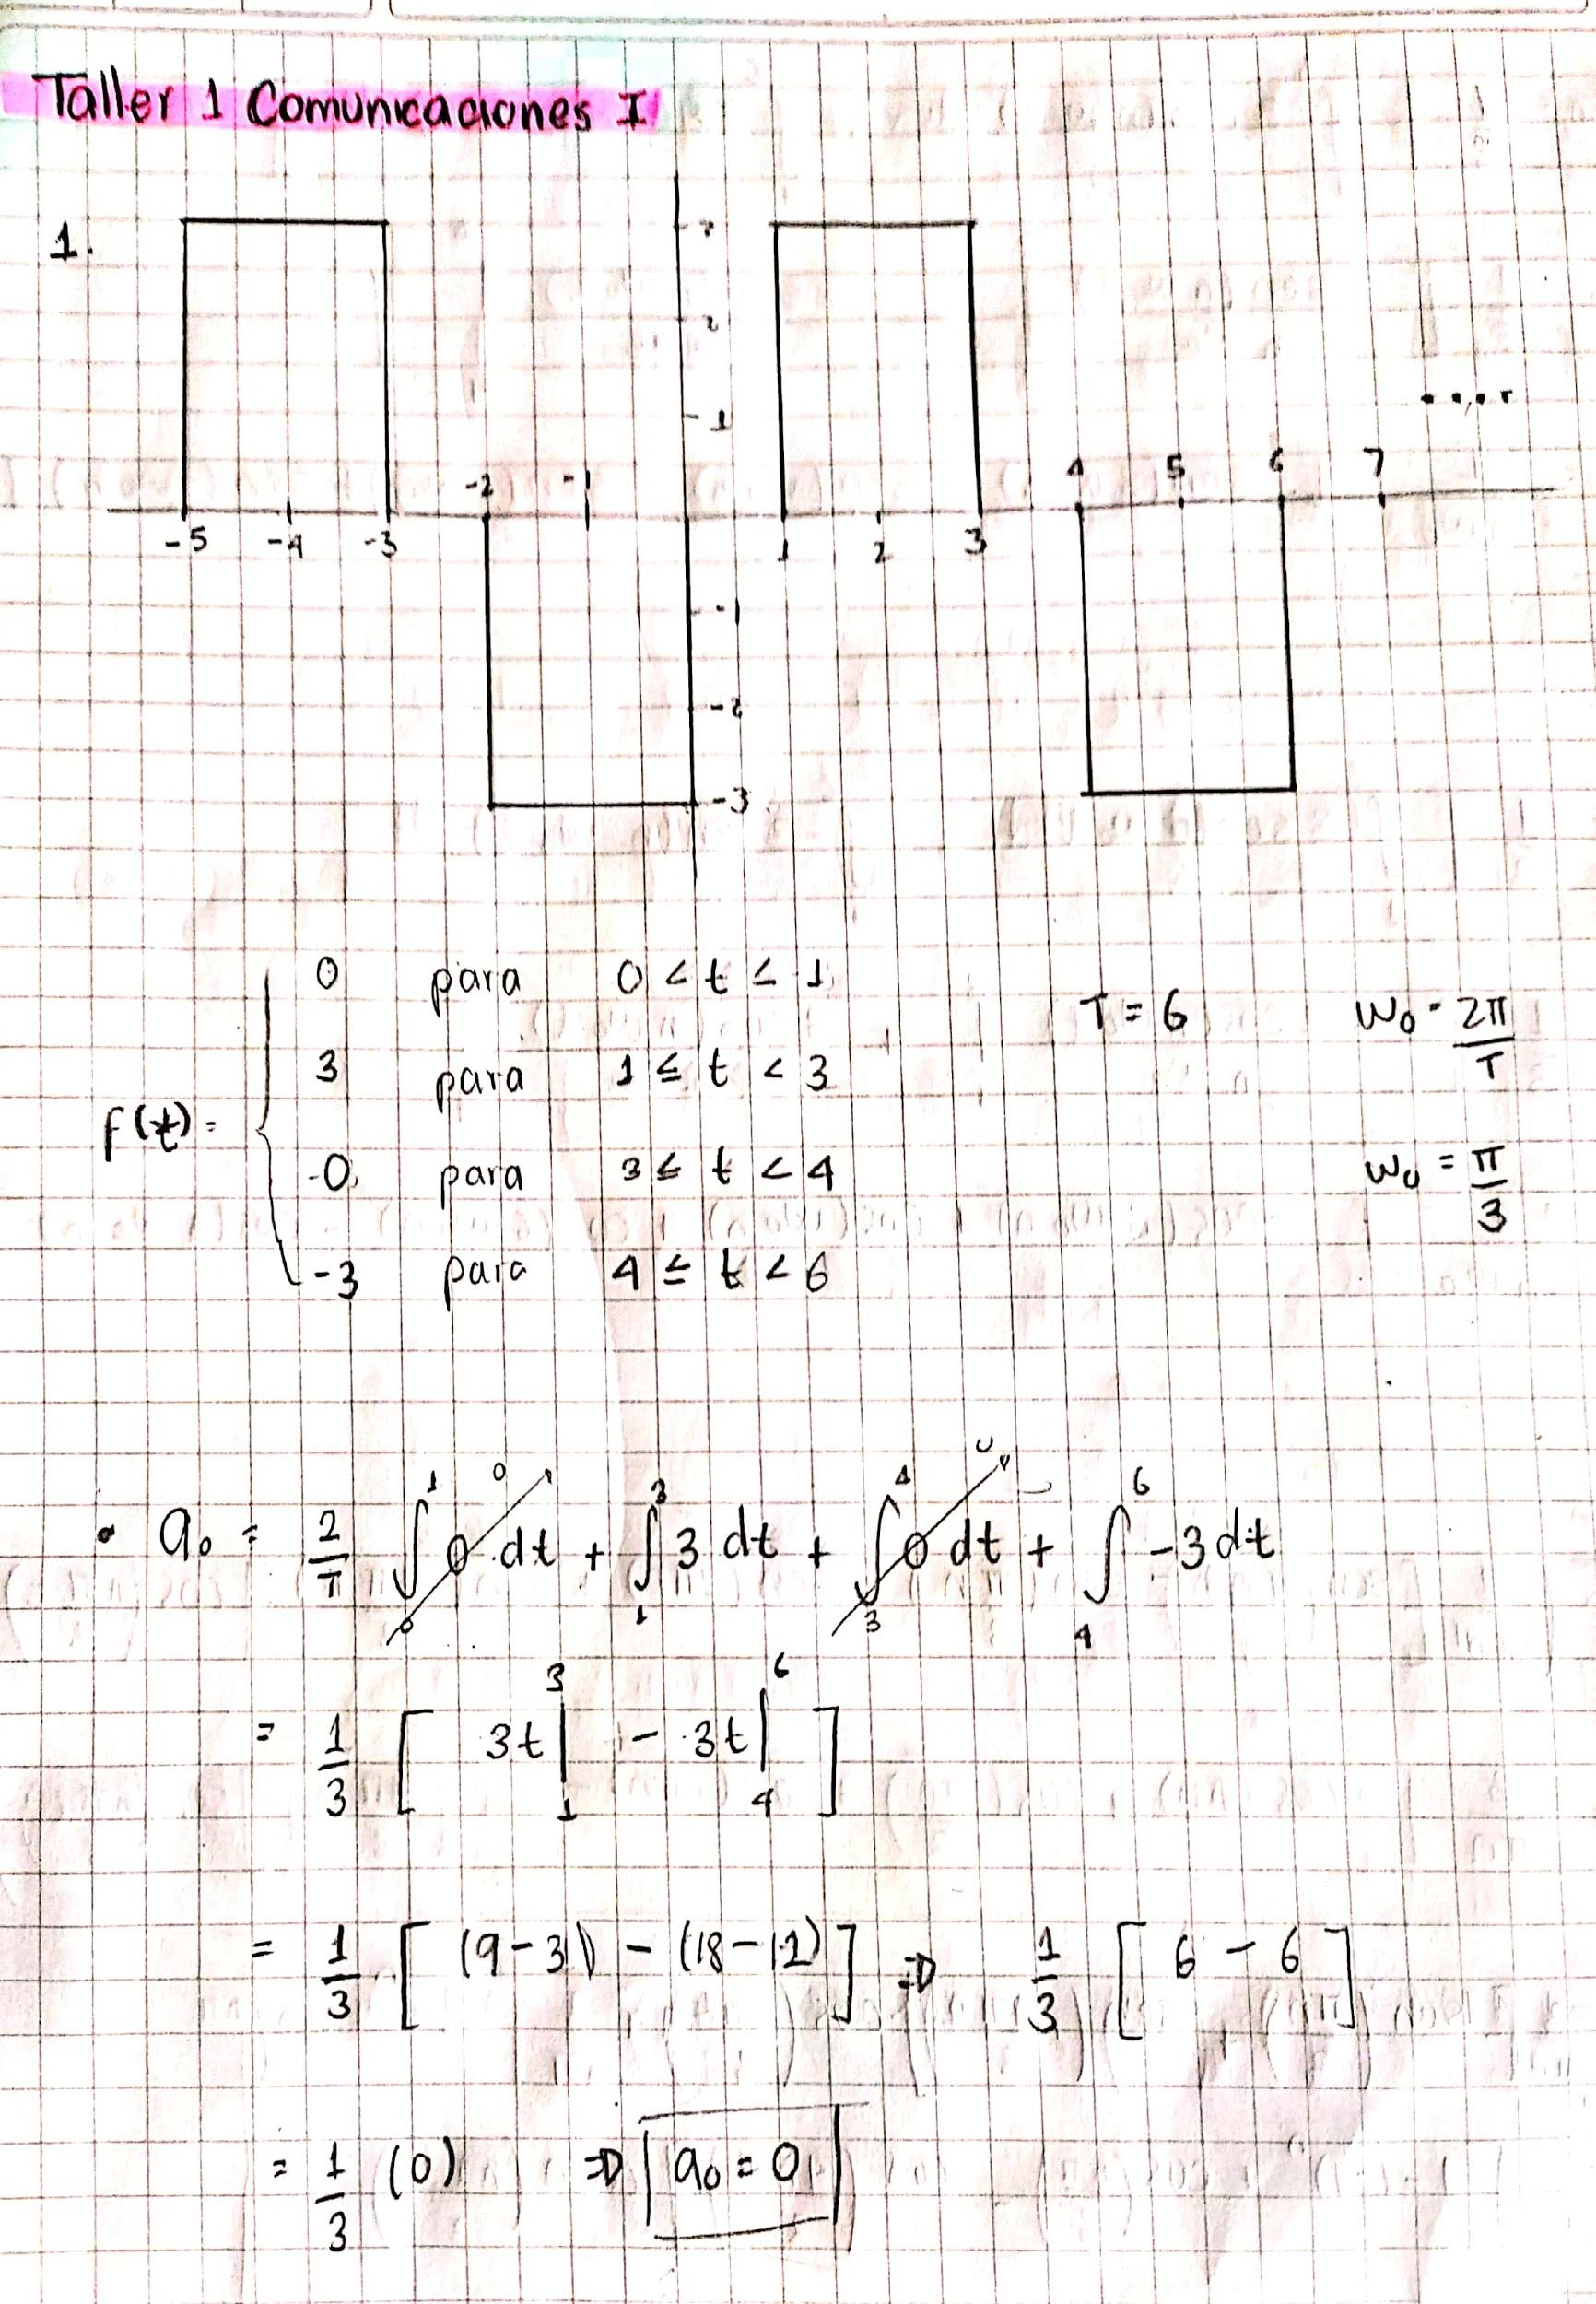 Taller 1 Comunicaciones I
1.
3
2
1
4 5 6 7 ....
-2 -1
-5 -4 -3 1 2 3
-1
-2
-3
f(t) =
0 para 0 < t ≤ 1
3 para 1 ≤ t < 3
0 para 3 ≤ t < 4
-3 para 4 ≤ t < 6
T = 6 w₀ = 2π/T
w₀ = π/3
• a₀ = 2/T ∫₀¹ 0 dt + ∫₁³ 3 dt + ∫₃⁴ 0 dt + ∫₄⁶ -3 dt
= 1/3 [ 3t |₁³ - 3t |₄⁶ ]
= 1/3 [ (9-3) - (18-12) ] ⇒ 1/3 [ 6 - 6 ]
= 1/3 (0) ⇒ a₀ = 0